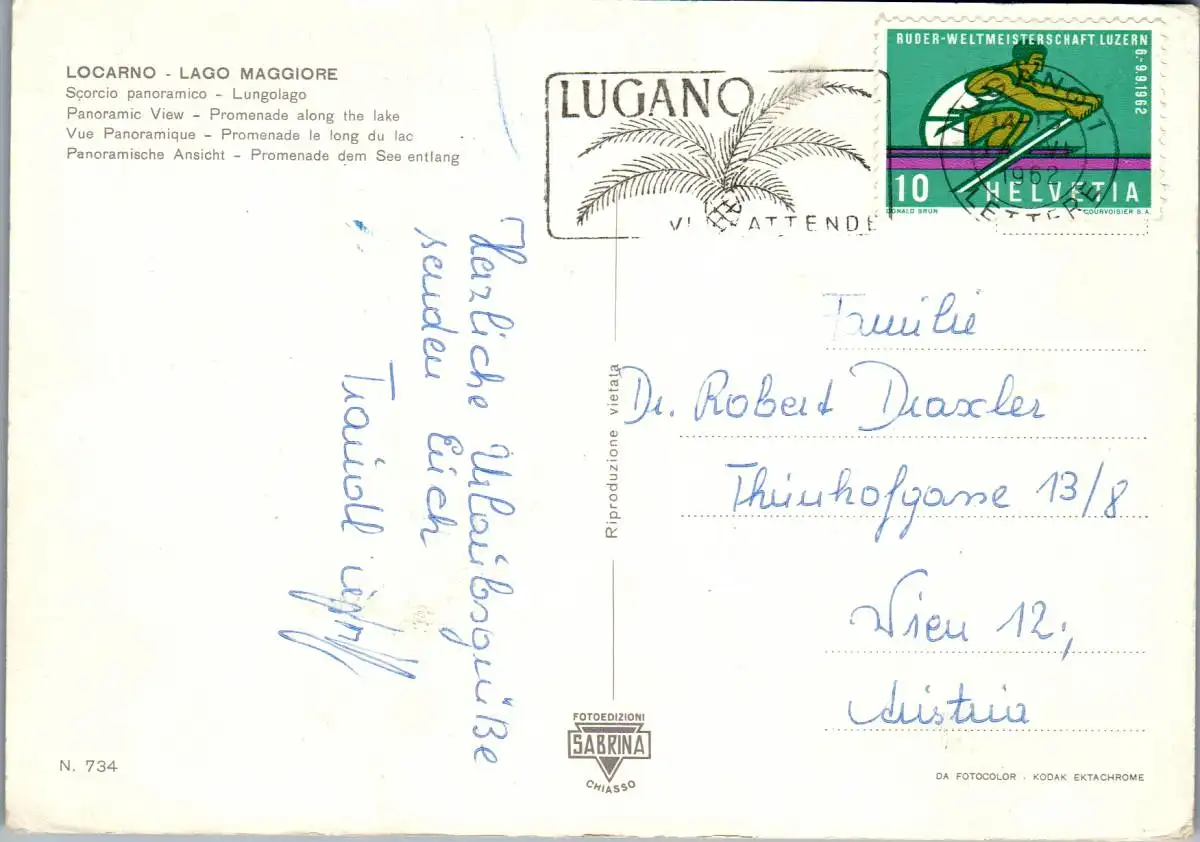 LOCARNO - LAGO MAGGIORE
Scorcio panoramico - Lungolago
Panoramic View - Promenade along the lake
Vue Panoramique - Promenade le long du lac
Panoramische Ansicht - Promenade dem See entlang
LUGANO
VI ATTENDE
RUDER-WELTMEISTERSCHAFT LUZERN
6.-9.9.1962
10 HELVETIA
DONALD BRUN COURVOISIER S.A.
1962
LETTERE
Herzliche Urlaubsgrüße
senden Euch
Traudl
Familie
Dr. Robert Draxler
Thunhofgasse 13/8
Wien 12.,
Austria
Riproduzione vietata
FOTOEDIZIONI
SABRINA
CHIASSO
N. 734
DA FOTOCOLOR . KODAK EKTACHROME